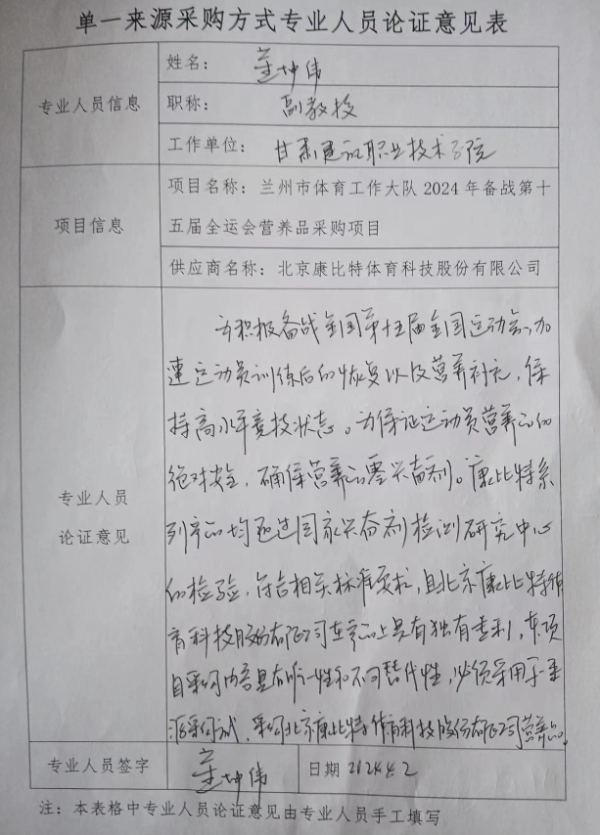 单一来源采购方式专业人员论证意见表
专业人员信息
姓名：坤伟
职称：副教授
工作单位：甘肃建筑职业技术学院
项目信息
项目名称：兰州市体育工作大队 2024 年备战第十
五届全运会营养品采购项目
供应商名称：北京康比特体育科技股份有限公司
专业人员
论证意见
为积极备战全国第十五届全国运动会，加
速运动员训练后的恢复以及营养补充，保
持高水平竞技状态。为保证运动员营养品的
绝对安全，确保营养品零兴奋剂。康比特系
列产品均通过国家兴奋剂检测研究中心
的检验，符合相关标准要求，且北京康比特体
育科技股份有限公司在产品上具有独有专利，本项
目采购内容具有唯一性和不可替代性，必须采用单一来
源采购方式，采购北京康比特体育科技股份有限公司营养品。
专业人员签字
坤伟
日期 2024.4.2
注：本表格中专业人员论证意见由专业人员手工填写